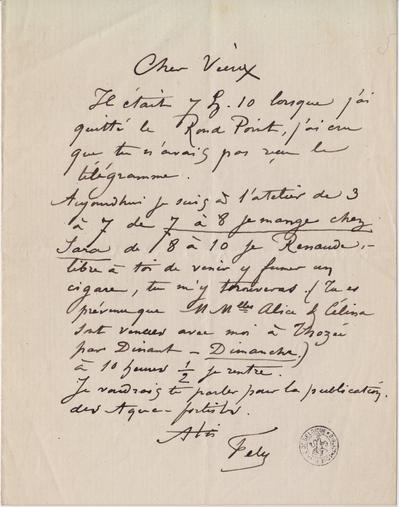 Cher Vieux
Il était 7 h. 10 lorsque j'ai
quitté le Rond Point, j'ai cru
que tu n'avais pas reçu le
télégramme.
Aujourdhui je suis à l'atelier de 3
à 7 de 7 à 8 je mange chez
Sara de 8 à 10 je Renaude,-
libre à toi de venir y fumer un
cigare, tu m'y trouveras. (Tu es
prévenu que MMelles Alice & Célina
sont venues avec moi à Thozée
par Dinant - Dimanche.)
à 10 heures 1/2 je rentre.
Je voudrais te parler pour la publication
des Aqua-fortistes.
Fely